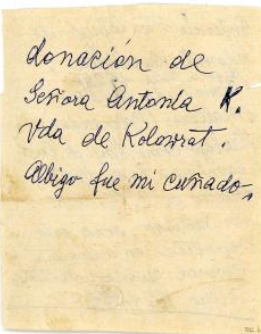 donación de
Señora Antonia K.
Vda de Kolowrat.
fue mi cuñado.